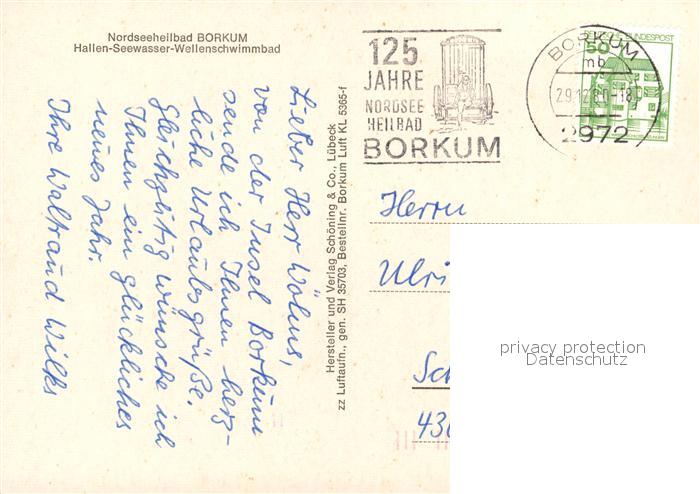 Nordseeheilbad BORKUM
Hallen-Seewasser-Wellenschwimmbad
Lieber Herr Wölms,
von der Insel Borkum
sende ich Ihnen herz-
liche Urlaubsgrüße.
Gleichzeitig wünsche ich
Ihnen ein glückliches
neues Jahr.
Ihre Waltraud Wilks
Hersteller und Verlag Schöning & Co., Lübeck
zz Luftaufn., gen. SH 35703, Bestellnr. Borkum Luft KL 5365-f
125
JAHRE
NORDSEE
HEILBAD
BORKUM
BORKUM
mb
29.12.80-18
2972
DEUTSCHE BUNDESPOST
50
Herrn
Ulri
Sc
430
privacy protection
Datenschutz